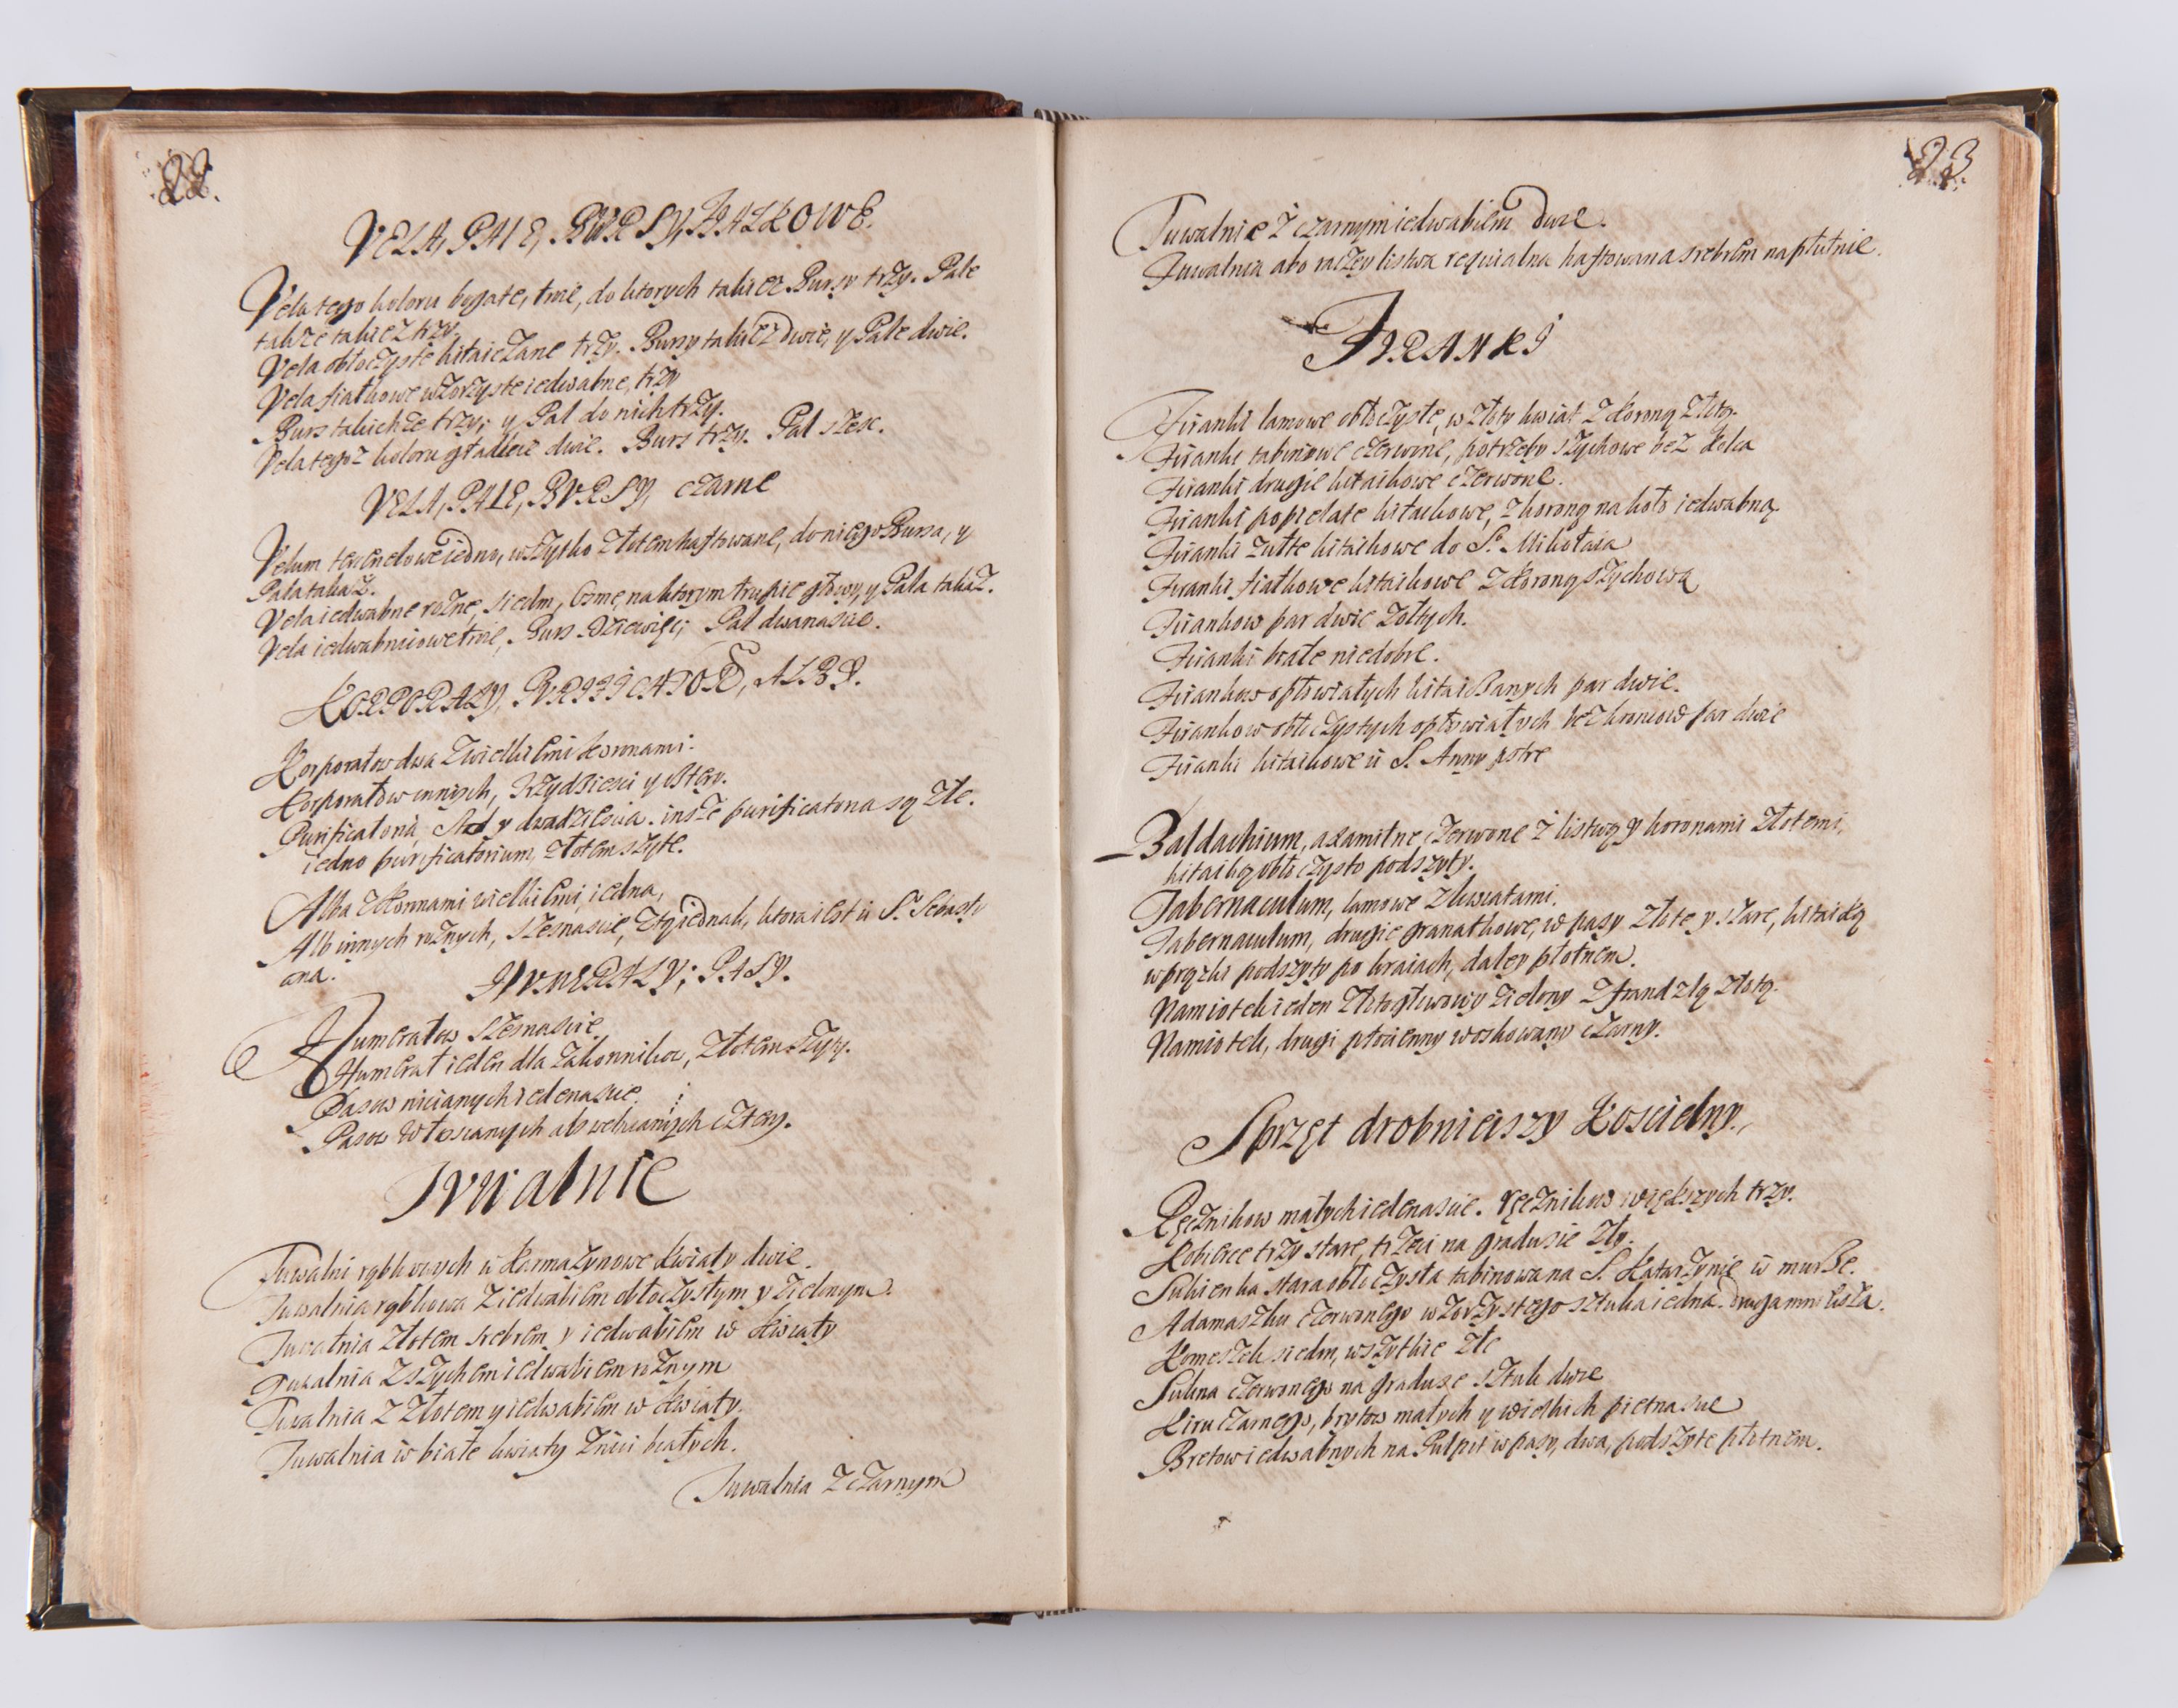 22.
VELA, PALE, BURSY, FIAŁKOWE.
Vela tego koloru bogate, trzie, do ktorych takiez Bursy trzy. Pale
takze takiez trzy.
Vela obłoczyste kitaiczane trzy. Bursy takiez dwie, y Pale dwie.
Vela fiałkowe wzorzyste iedwabne, trzy
Burs takichze trzy, y Pal do nich trzy.
Vela tegoz koloru gładkie dwie. Burs trzy. Pal szesc.
VELA, PALE, BURSY, czarne
Velum iedno, wszytko złotem haftowane, do niego Bursa, y
Pala takaz.
Vela iedwabne rożne, siedm, osme, na ktorym trupie głowy, y Pala takaz.
Vela Burs Dziewięć; Pal dwanascie.
KORPORAŁY, PURIFICATOR, ALBY.
Korporałow dwa z wielkiemi koronami.
Korporałow innych, trzydziesci y cztery.
Purificatoria, sto y dwadziescia. insze purificatoria są złe.
iedno purificatorium, złotem szyte.
Alba z koronami wielkiemi, iedna,
Alb innych rożnych, szesnascie, z tą iednak, ktora iest u S. Sebasty
ana.
HUMERAŁY; PASY.
Humerałow szesnascie
Humerał ieden dla zakonnikow, złotem szyty.
Pasow nicianych iedenascie.
Pasow włosianych abo wełnianych cztery.
Tuwalnie
Tuwalni rąbkowych w karmazynowe kwiaty dwie.
Tuwalnia rąbkowa z iedwabiem obłoczystym y zielonym.
Tuwalnia złotem srebrem y iedwabiem w kwiaty
Tuwalnia z szychem iedwabiem rożnym
Tuwalnia z złotem y iedwabiem w kwiaty.
Tuwalnia w białe kwiaty z nici białych.
Tuwalnia z czarnym
23
Tuwalnie z czarnym iedwabiem dwie.
Tuwalnia abo raczey listwa requialna haftowana srebrem na płutnie.
FIRANKI
Firanki lamowe obłoczyste, w złoty kwiat z koroną złotą.
Firanki tabinowe czerwone, potrzeby szychowe bez kołca
Firanki drugie kitaikowe czerwone.
Firanki popielate kitaikowe, z koroną na koło iedwabną.
Firanki zułte kitaikowe do S. Mikołaia
Firanki fiałkowe kitaikowe z koroną szychową
Firankow par dwie zołtych.
Firanki białe niedobre.
Firankow opłowiałych kitaiczanych par dwie.
Firankow obłoczystych opłowiałych bez koronow par dwie
Firanki kitaikowe u S. Anny pstre
Baldachium, axamitne czerwone z listwą y koronami złotemi,
kitaiką obłoczysto podszyty.
Tabernaculum, lamowe z kwiatami.
Tabernaculum, drugie granatkowe, w pasy złote y szare, kitaiką
w prązki podszyty po kraiach, daley płotnem.
Namiotek ieden złotogłowowy zielony z frandzlą złotą.
Namiotek, drugi płocienny woskowany czarny.
Sprzęt drobnieiszy koscielny.
Ręcznikow małych iedenascie. ręcznikow większych trzy.
Kobierce trzy stare, trzeci na gradusie zły.
Sukienka stara obłoczysta tabinowa na S. Katarzynie w murze.
Adamaszku czerwonego wzorzystego sztuka iedna. druga mnieisza.
Komeszek siedm, wszytkie złe
Sukna czerwonego na graduse sztuk dwie
Kiru czarnego, brytow małych y wielkich pietnascie
Bretow iedwabnych na Pulpit w pasy, dwa, podszyte płotnem.